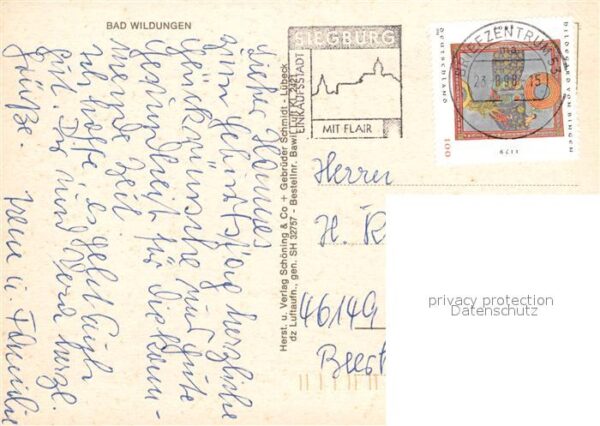 BAD WILDUNGEN
Lieber Hannes
zum Geburtstag herzliche
Glückwünsche und gute
Gesundheit für die kom-
mende Zeit.
Ich hoffe es geht Euch
gut. Dir und Vera herzl.
Grüße.
u. Familie
Herst. u. Verlag Schöning & Co + Gebrüder Schmidt - Lübeck
dz Luftaufn., gen. SH 32/57 - Bestellnr. Bawil
SIEGBURG
EINKAUFSSTADT
MIT FLAIR
BRIEFZENTRUM 53
ma
DEUTSCHLAND
HILDEGARD VON BINGEN
100
1179
Herrn
H. K
46149
privacy protection
Datenschutz